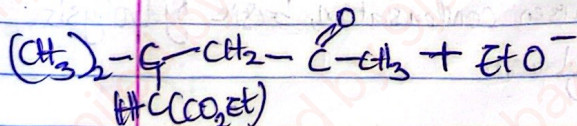 O
(CH₃)₂-C-CH₂-C-CH₃ + EtO⁻
HC(CO₂Et)